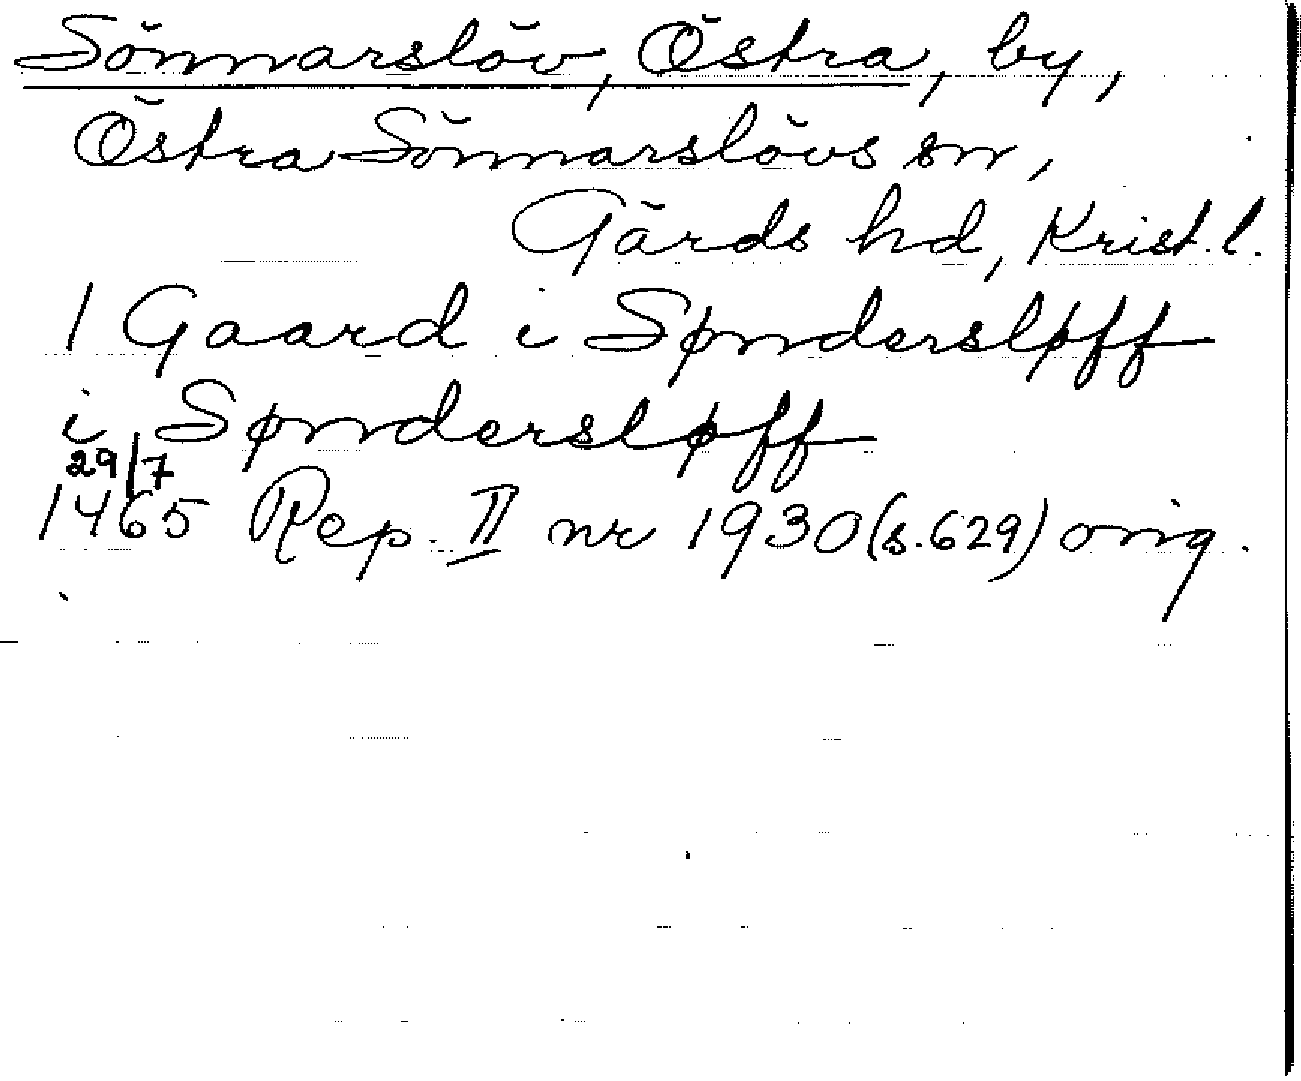 Sönnarslöv, Östra, by,
Östra Sönnarslövs sn,
Gärds hd, Krist. l.
1 Gaard i Søndersløff
i Søndersløff
29/7
1465 Rep. II nr 1930 (s. 629) orig.